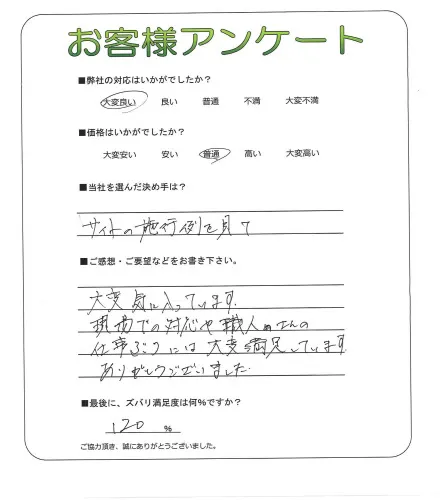 お客様アンケート
■弊社の対応はいかがでしたか?
大変良い 良い 普通 不満 大変不満
■価格はいかがでしたか?
大変安い 安い 普通 高い 大変高い
■当社を選んだ決め手は?
サイトの施行例を見て
■ご感想・ご要望などをお書き下さい。
大変気に入っています。
現場での対応や職人さんの
仕事ぶりには大変満足しています。
ありがとうございました。
■最後に、ズバリ満足度は何%ですか?
120 %
ご協力頂き、誠にありがとうございました。